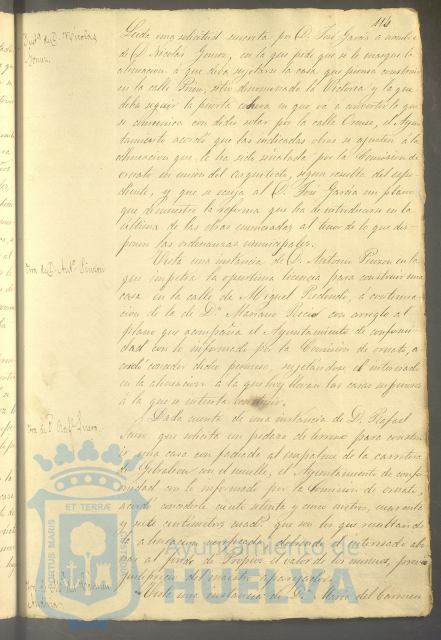 116
Leida una solicitud suscrita por D. José Garcia á nombre
de D. Nicolas Gomez, en la que pide que se le marque la
alineacion á que deba sujetarse la casa que piensa construir
en la calle Prim, sitio denominado la Victoria y la que
deba seguir la puerta cochera en que va á convertir la que
se comunica con dicho solar por la calle Orense, el Ayun-
tamiento acordó que las indicadas obras se ajusten á la
alineacion que le ha sido señalada por la Comision de
ornato en union del arquitecto, segun resulta del espe-
diente, y que se exija al D. José Garcia un plano
que demuestre la reforma que ha de introducirse en la
última de las obras enunciadas al tenor de lo que dis-
ponen las ordenanzas municipales.
Otra de D. Antº Pinzon
Vista una instancia de D. Antonio Pinzon en la
que impetra la oportuna licencia para construir una
casa en la calle de Miguel Redondo, á continua-
cion de la de Dn Mariano con arreglo al
plano que acompaña el Ayuntamiento de conformi-
dad con lo informado por la Comision de ornato, a-
cordó conceder dicho permiso, sujetandose el interesado
en la alineacion á la que hoy llevan las casas
á la que se intenta construir.
Otra de D. Rafl
Dada cuenta de una instancia de D. Rafael
que solicita un pedazo de terreno para constru-
ir una casa con fachada al empalme de la carretera
de Gibraleon con el muelle, el Ayuntamiento de confor-
midad con lo informado por la Comision de ornato
acordó concederle ciento setenta y cinco metros, cuarenta
y siete centimetros cuads que son los que resultan de
la alineacion debiendo el interesado abo-
nar al fondo de Propios el valor de los mismos, previo
justiprecio del maestro aparejador.
Vista una instancia de Dª Maria del Carmen
PORTUS MARIS ET TERRÆ CUSTODIA
Ayuntamiento de
HUELVA